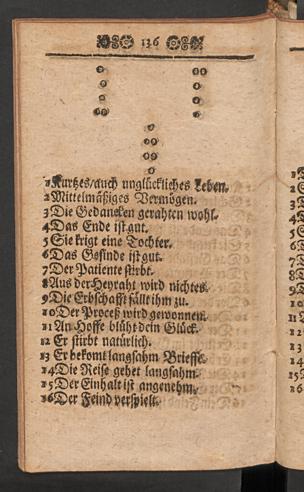 136
1 Kurtzes/auch unglückliches Leben.
2 Mittelmäßiges Vermögen.
3 Die Gedancken gerahten wohl.
4 Das Ende ist gut.
5 Sie krigt eine Tochter.
6 Das Gesinde ist gut.
7 Der Patiente stirbt.
8 Aus der Heyraht wird nichtes.
9 Die Erbschafft fällt ihm zu.
10 Der Proceß wird gewonnen.
11 An Hoffe blüht dein Glück.
12 Er stirbt natürlich.
13 Er bekomt langsahm Brieffe.
14 Die Reise gehet langsahm.
15 Der Einhalt ist angenehm.
16 Der Feind verspielt.